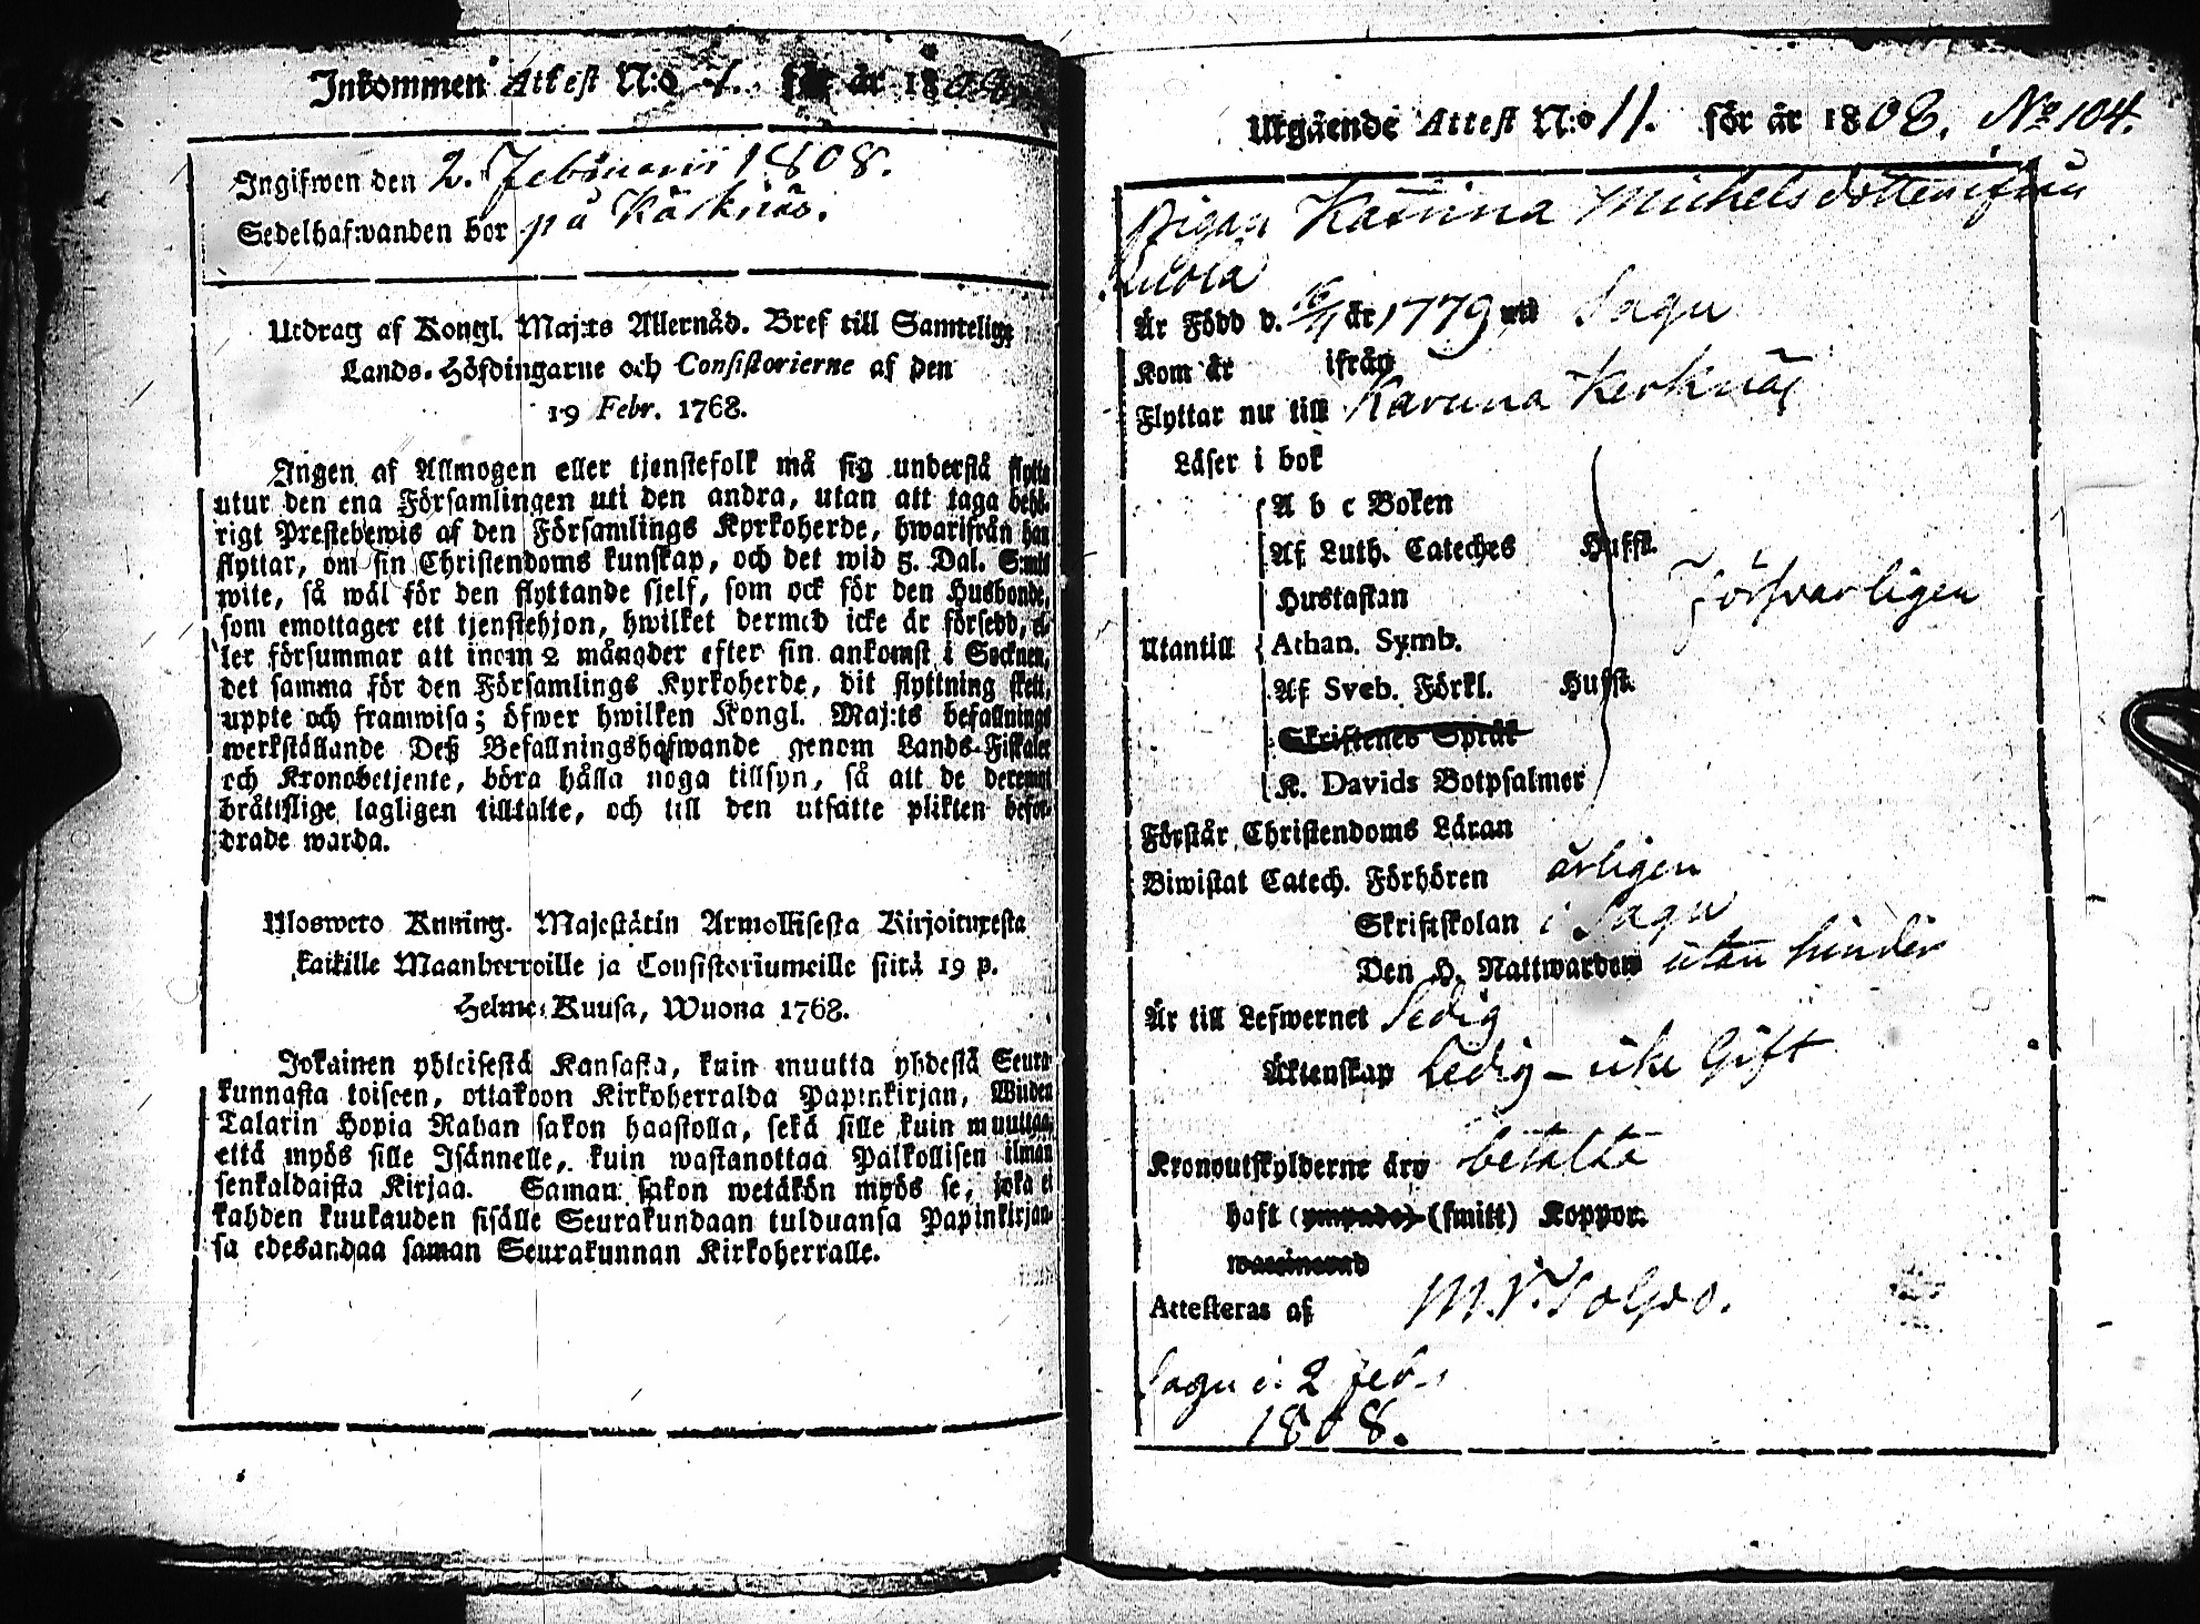 Inkommen Attest N:o 1. för år 1808.
Ingifwen den 2. Februarii 1808.
Sedelhafwanden bor på Käsknäs.
Utdrag af Kongl. Maj:ts Allernåd. Bref till Samtelige
Lands-Höfdingarne och Consistorierne af den
19 Febr. 1768.
Ingen af Allmogen eller tjenstefolk må sig understå flytta
utur den ena Församlingen uti den andra, utan att taga behö-
rigt Prestebewis af den Församlings Kyrkoherde, hwarifrån han
flyttar, om sin Christendoms kunskap, och det wid 5. Dal. S:mts
wite, så wäl för den flyttande sjelf, som ock för den Husbonde,
som emottager ett tjenstehjon, hwilket dermed icke är försedd, el-
ler försummar att inom 2 månader efter sin ankomst i Socknen,
det samma för den Församlings Kyrkoherde, dit flyttning skett,
uppte och framwisa; öfwer hwilken Kongl. Maj:ts befallnings
werkställande Deß Befallningshafwande genom Lands-Fiskaler
och Kronobetjente, böra hålla noga tillsyn, så att de deremot
bråttslige lagligen tilltalte, och till den utsatte plikten befor-
drade warda.
Ulosweto Kuning. Majestätin Armollisesta Kirjoituxesta
kaikille Maanherroille ja Consistoriumeille siitä 19 p.
Helme-Kuusa, Wuona 1768.
Jokainen yhteisestä Kansasta, kuin muutta yhdestä Seura-
kunnasta toiseen, ottakoon Kirkoherralda Papinkirjan, Wiiden
Talarin Hopia Rahan sakon haastolla, sekä sille kuin muuttaa,
että myös sille Isännelle, kuin wastanottaa Palkollisen ilman
senkaldaista Kirjaa. Saman sakon wetäkön myös se, joka ei
kahden kuukauden sisälle Seurakundaan tulduansa Papinkirjaan-
sa edesandaa saman Seurakunnan Kirkoherralle.
Utgående Attest N:o 11. för år 1808. No 104.
Pigan Katrina Michelsdotter ifrån
Är Född d. 16/11 år 1779 uti Sagu
Kom år ifrån
Flyttar nu till Karuna Kerknäs
Läser i bok
A b c Boken
Af Luth. Cateches Hufst.
Hustaflan
Utantill Athan. Symb. Försvarligen
Af Sveb. Förkl. Hufst.
Skriftenes Språk
K. Davids Botpsalmer
Förstår Christendoms Läran
Biwistat Catech. Förhören årligen
Skriftskolan i Sagu
Den H. Nattwarden utan hinder
Är till Lefwernet Sedig
Äktenskap Ledig - icke Gift
Kronoutskylderne äro betalta
haft (ympade) (smitt) Koppor.
waccinerad
Attesteras af
Sagu d. 2 feb.
1808.